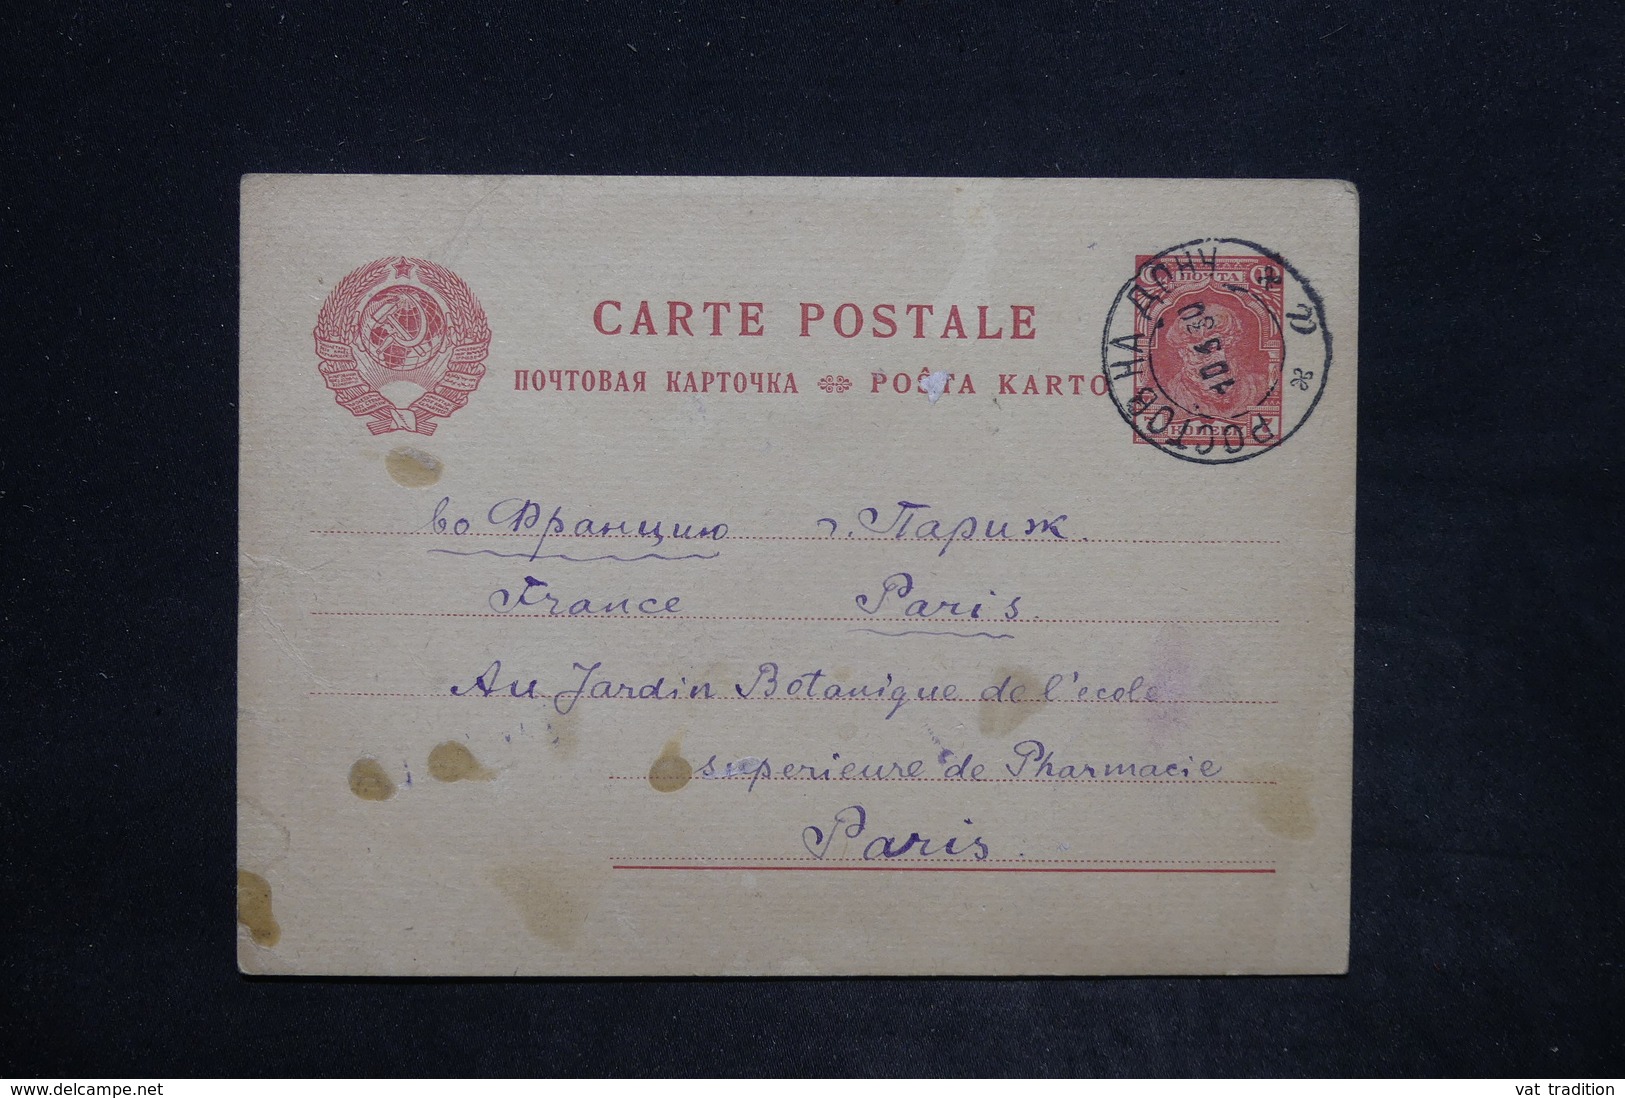 CARTE POSTALE
ПОЧТОВАЯ КАРТОЧКА POŜTA KARTO
ПОЧТА
РОСТОВ НА ДОНУ
10 5 30
во Францию г. Париж.
France Paris.
Au Jardin Botanique de l'ecole
superieure de Pharmacie
Paris.
www.delcampe.net
vat tradition